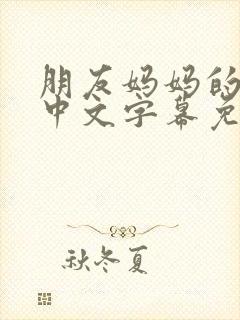 朋友妈妈的
中文字幕免
秋冬夏